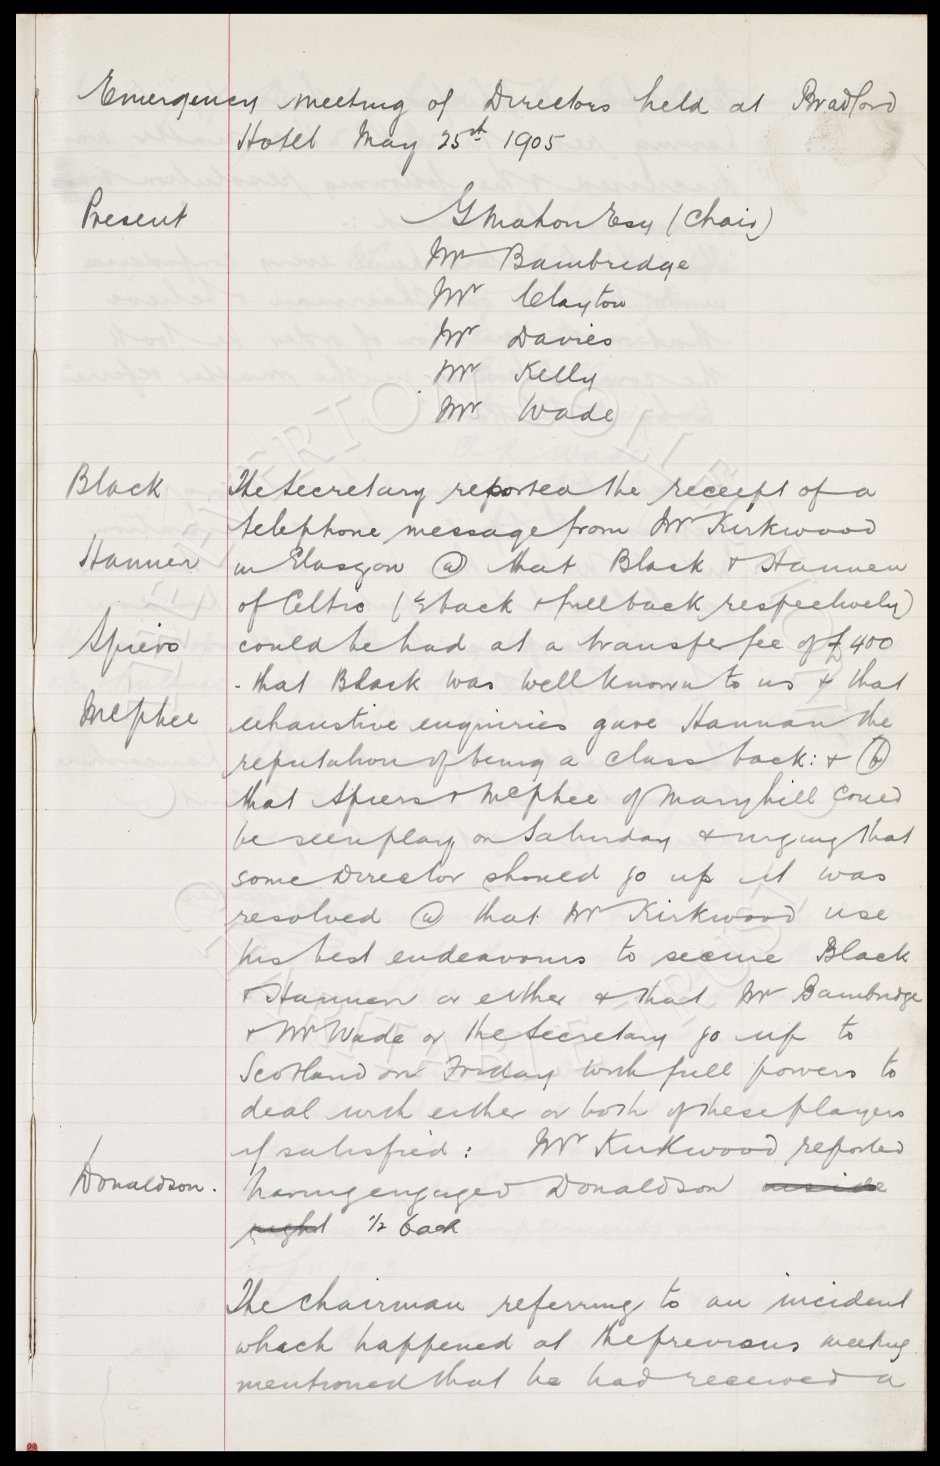 Emergency meeting of Directors held at Bradford
Hotel May 25st 1905
Present
G Mahon Esq (Chair)
Mr Bambridge
Mr Clayton
Mr Davies
Mr Kelly
Mr Wade
Black
The Secretary reported the receipt of a
telephone message from Mr Kirkwood
Hannen
in Glasgow (a) that Black & Hannen
of Celtic (½ back & full back respectively)
Spiers
could be had at a transfer fee of £400
that Black was well known to us & that
McPhee
exhaustive enquiries gave Hannan the
reputation of being a class back: & (b)
that Spiers & McPhee of Maryhill could
be seen play on Saturday & urging that
some Director should go up it was
resolved (a) that Mr Kirkwood use
his best endeavours to secure Black
& Hannen or either & that Mr Bambridge
& Mr Wade or the Secretary go up to
Scotland on Friday with full powers to
deal with either or both of these players
if satisfied: Mr Kirkwood reported
Donaldson.
having engaged Donaldson inside
right ½ back
The Chairman referring to an incident
which happened at the previous meeting
mentioned that he had received a
EVERTON COLLECTION
CHARITABLE TRUST